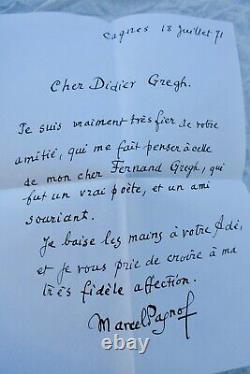 Cagnes 18 Juillet 71
Cher Didier Gregh.
Je suis vraiment très fier de votre
amitié, qui me fait penser à celle
de mon cher Fernand Gregh, qui
fut un vrai poète, et un ami
souriant.
Je baise les mains à votre Adé,
et je vous prie de croire à ma
très fidèle affection.
Marcel Pagnol
© 123RF